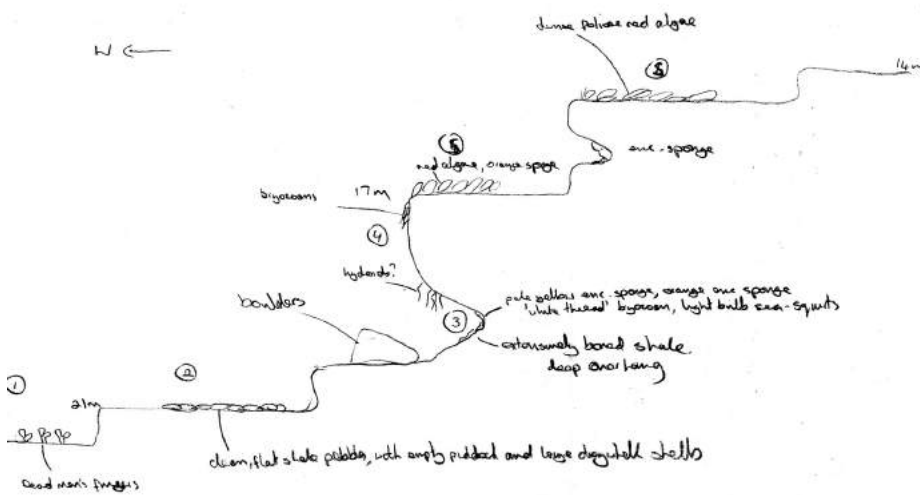 dense foliose red algae
W
14m
5
enc. sponge
5
red algae, orange sponge
bryozoans
17m
4
hydroids?
pale yellow enc. sponge, orange enc sponge
'white thread' bryozoan, light bulb sea-squirts
3
boulders
extensively bored shale.
deep overhang
1
2
21m
clean, flat shale pebbles, with empty piddock and large dogwhelk shells
Dead men's fingers